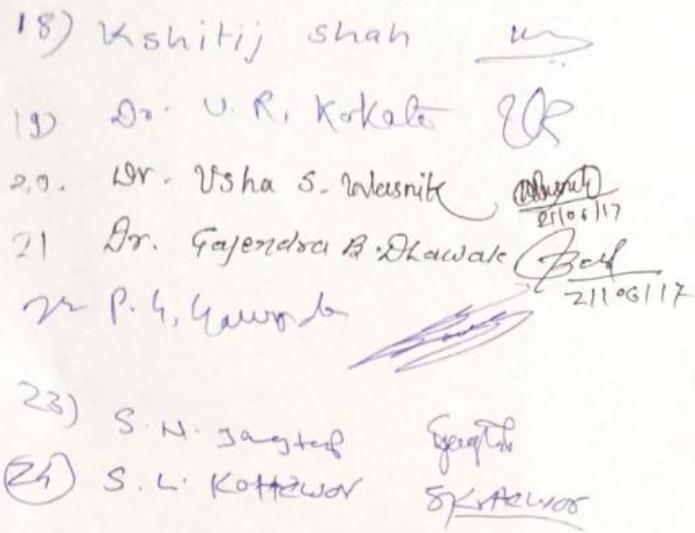 18) Kshitij Shah
19) Dr. U. R. Kokate
20. Dr. Usha S. Wasnik
21/06/17
21 Dr. Gajendra B. Dhawale
21/06/17
22 P. G. Gawande
23) S. N. Jagtap Jagtap
24 S. L. Kottewor SKottewor